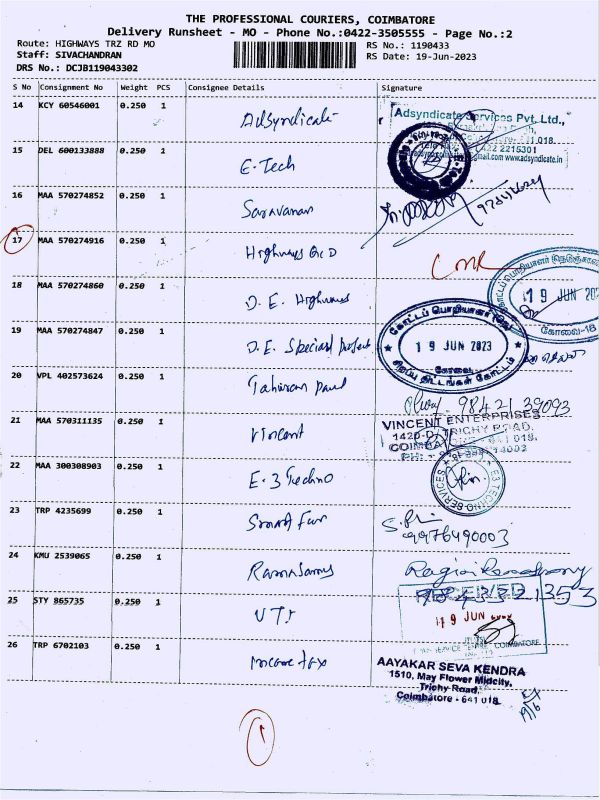 THE PROFESSIONAL COURIERS, COIMBATORE
Delivery Runsheet - MO - Phone No.:0422-3505555 - Page No.:2
Route: HIGHWAYS TRZ RD MO
RS No.: 1190433
Staff: SIVACHANDRAN
RS Date: 19-Jun-2023
DRS No.: DCJB119043302
S No Consignment No Weight PCS Consignee Details Signature
14 KCY 60546001 0.250 1 Adsyndicate
Adsyndicate Services Pvt. Ltd.,
641 018.
0422 2215301
www.adsyndicate.in
15 DEL 600133888 0.250 1 E-Tech
16 MAA 570274852 0.250 1 Saravanan
17 MAA 570274916 0.250 1 Highways
18 MAA 570274860 0.250 1 D.E. Highways
19 JUN
கோவை-18
19 MAA 570274847 0.250 1 D.E. Special Project
19 JUN 2023
கோவை
சிறப்பு திட்டங்கள் கோட்டம்
20 VPL 402573624 0.250 1
98421 39093
21 MAA 570311135 0.250 1 Vincent
VINCENT ENTERPRISES
TRICHY ROAD,
COIMBATORE - 641 018.
22 MAA 300308903 0.250 1 E-3 Techno
E3 TECHNO SERVICES
23 TRP 4235699 0.250 1 Smart
9976490003
24 KMU 2539065 0.250 1 Ramasamy
25 STY 865735 0.250 1 UTI
RECEIVED
19 JUN
COIMBATORE
26 TRP 6702103 0.250 1 Income tax
AAYAKAR SEVA KENDRA
1510, May Flower Midcity,
Trichy Road,
Coimbatore - 641 018
19/6